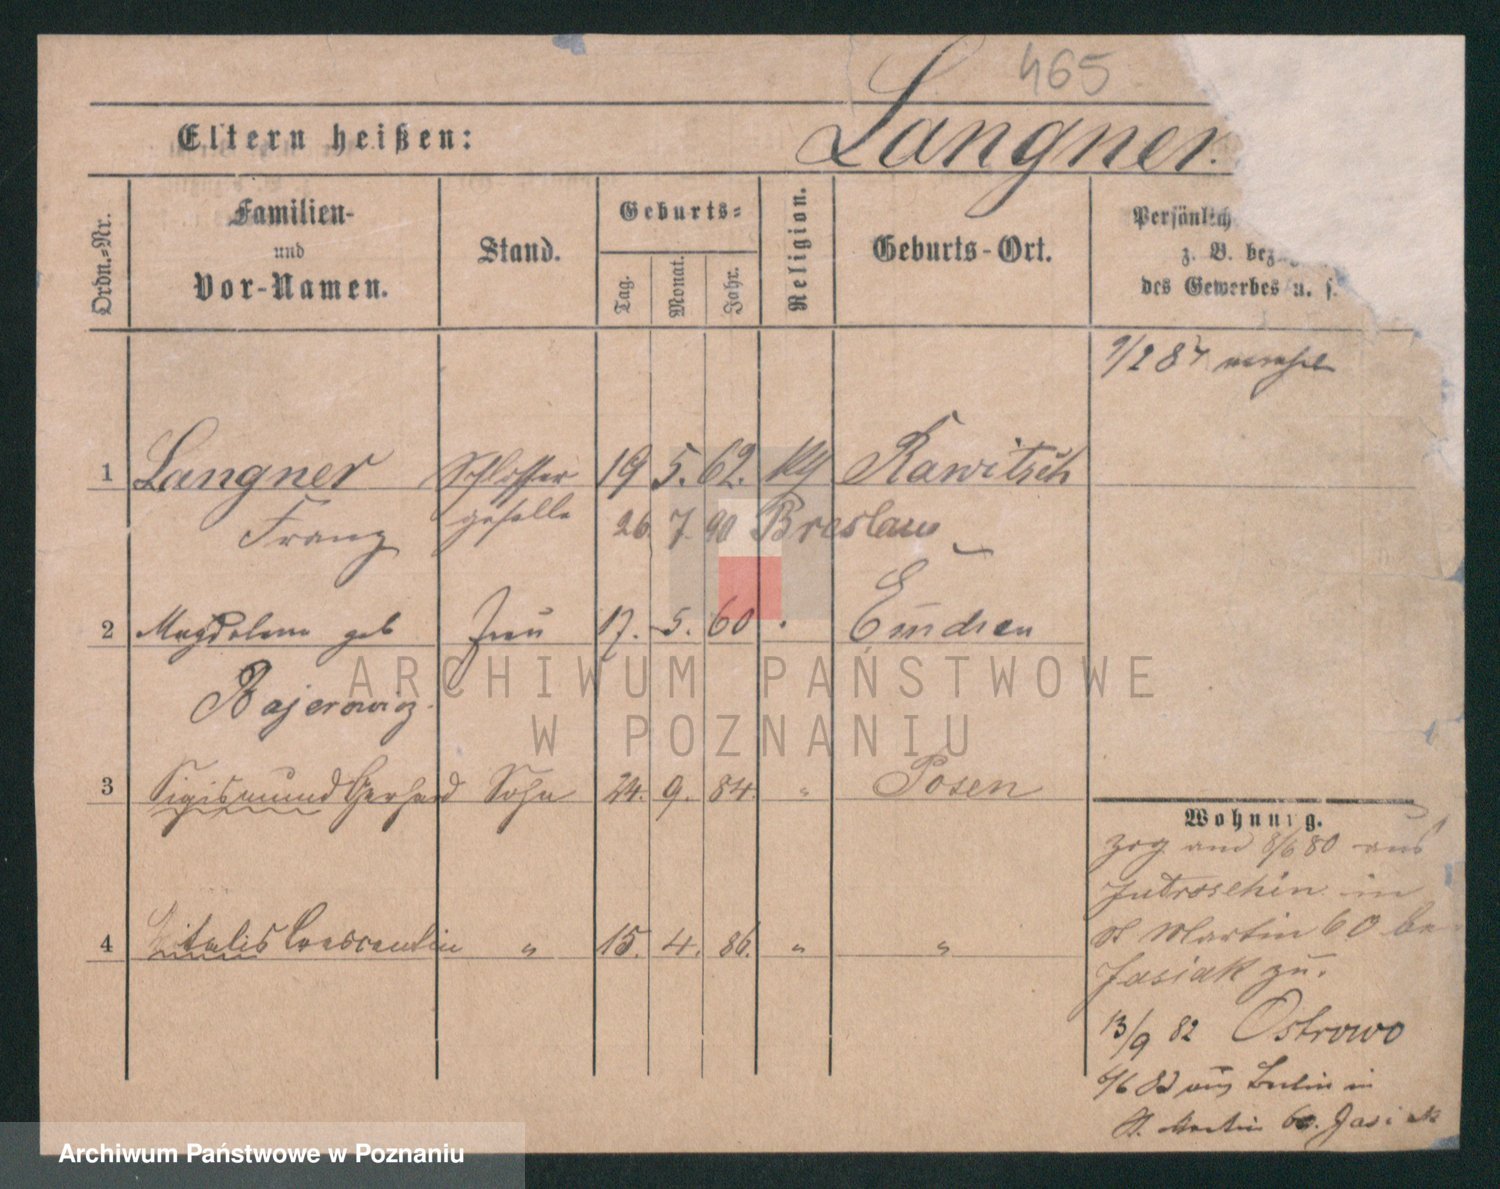 465
Eltern heißen: Langner.
Ordn.-Nr.
Familien-
und
Vor-Namen.
Stand.
Geburts-
Tag.
Monat.
Jahr.
Religion.
Geburts-Ort.
Persönlich
z. B. bez
des Gewerbes u. s.
9/2 87
1 Langner Schlosser 19 5. 62. Rawitsch
Franz geselle 26. 7. 90 Breslau
2 Magdalena geb Frau 17. 5. 60
Bajerowicz
3 Sigismund Gerhard Sohn 24. 9. 84. " Posen
4 Vitalis Crescentin " 15. 4. 86. " "
Wohnung.
zog am 8/6 80 aus
Jutroschin in
St Martin 60 be
Jasiak zu.
13/9 82 Ostrowo
6/6 83 aus Berlin in
St. Martin 60. Jasiak
ARCHIWUM PAŃSTWOWE
W POZNANIU
Archiwum Państwowe w Poznaniu